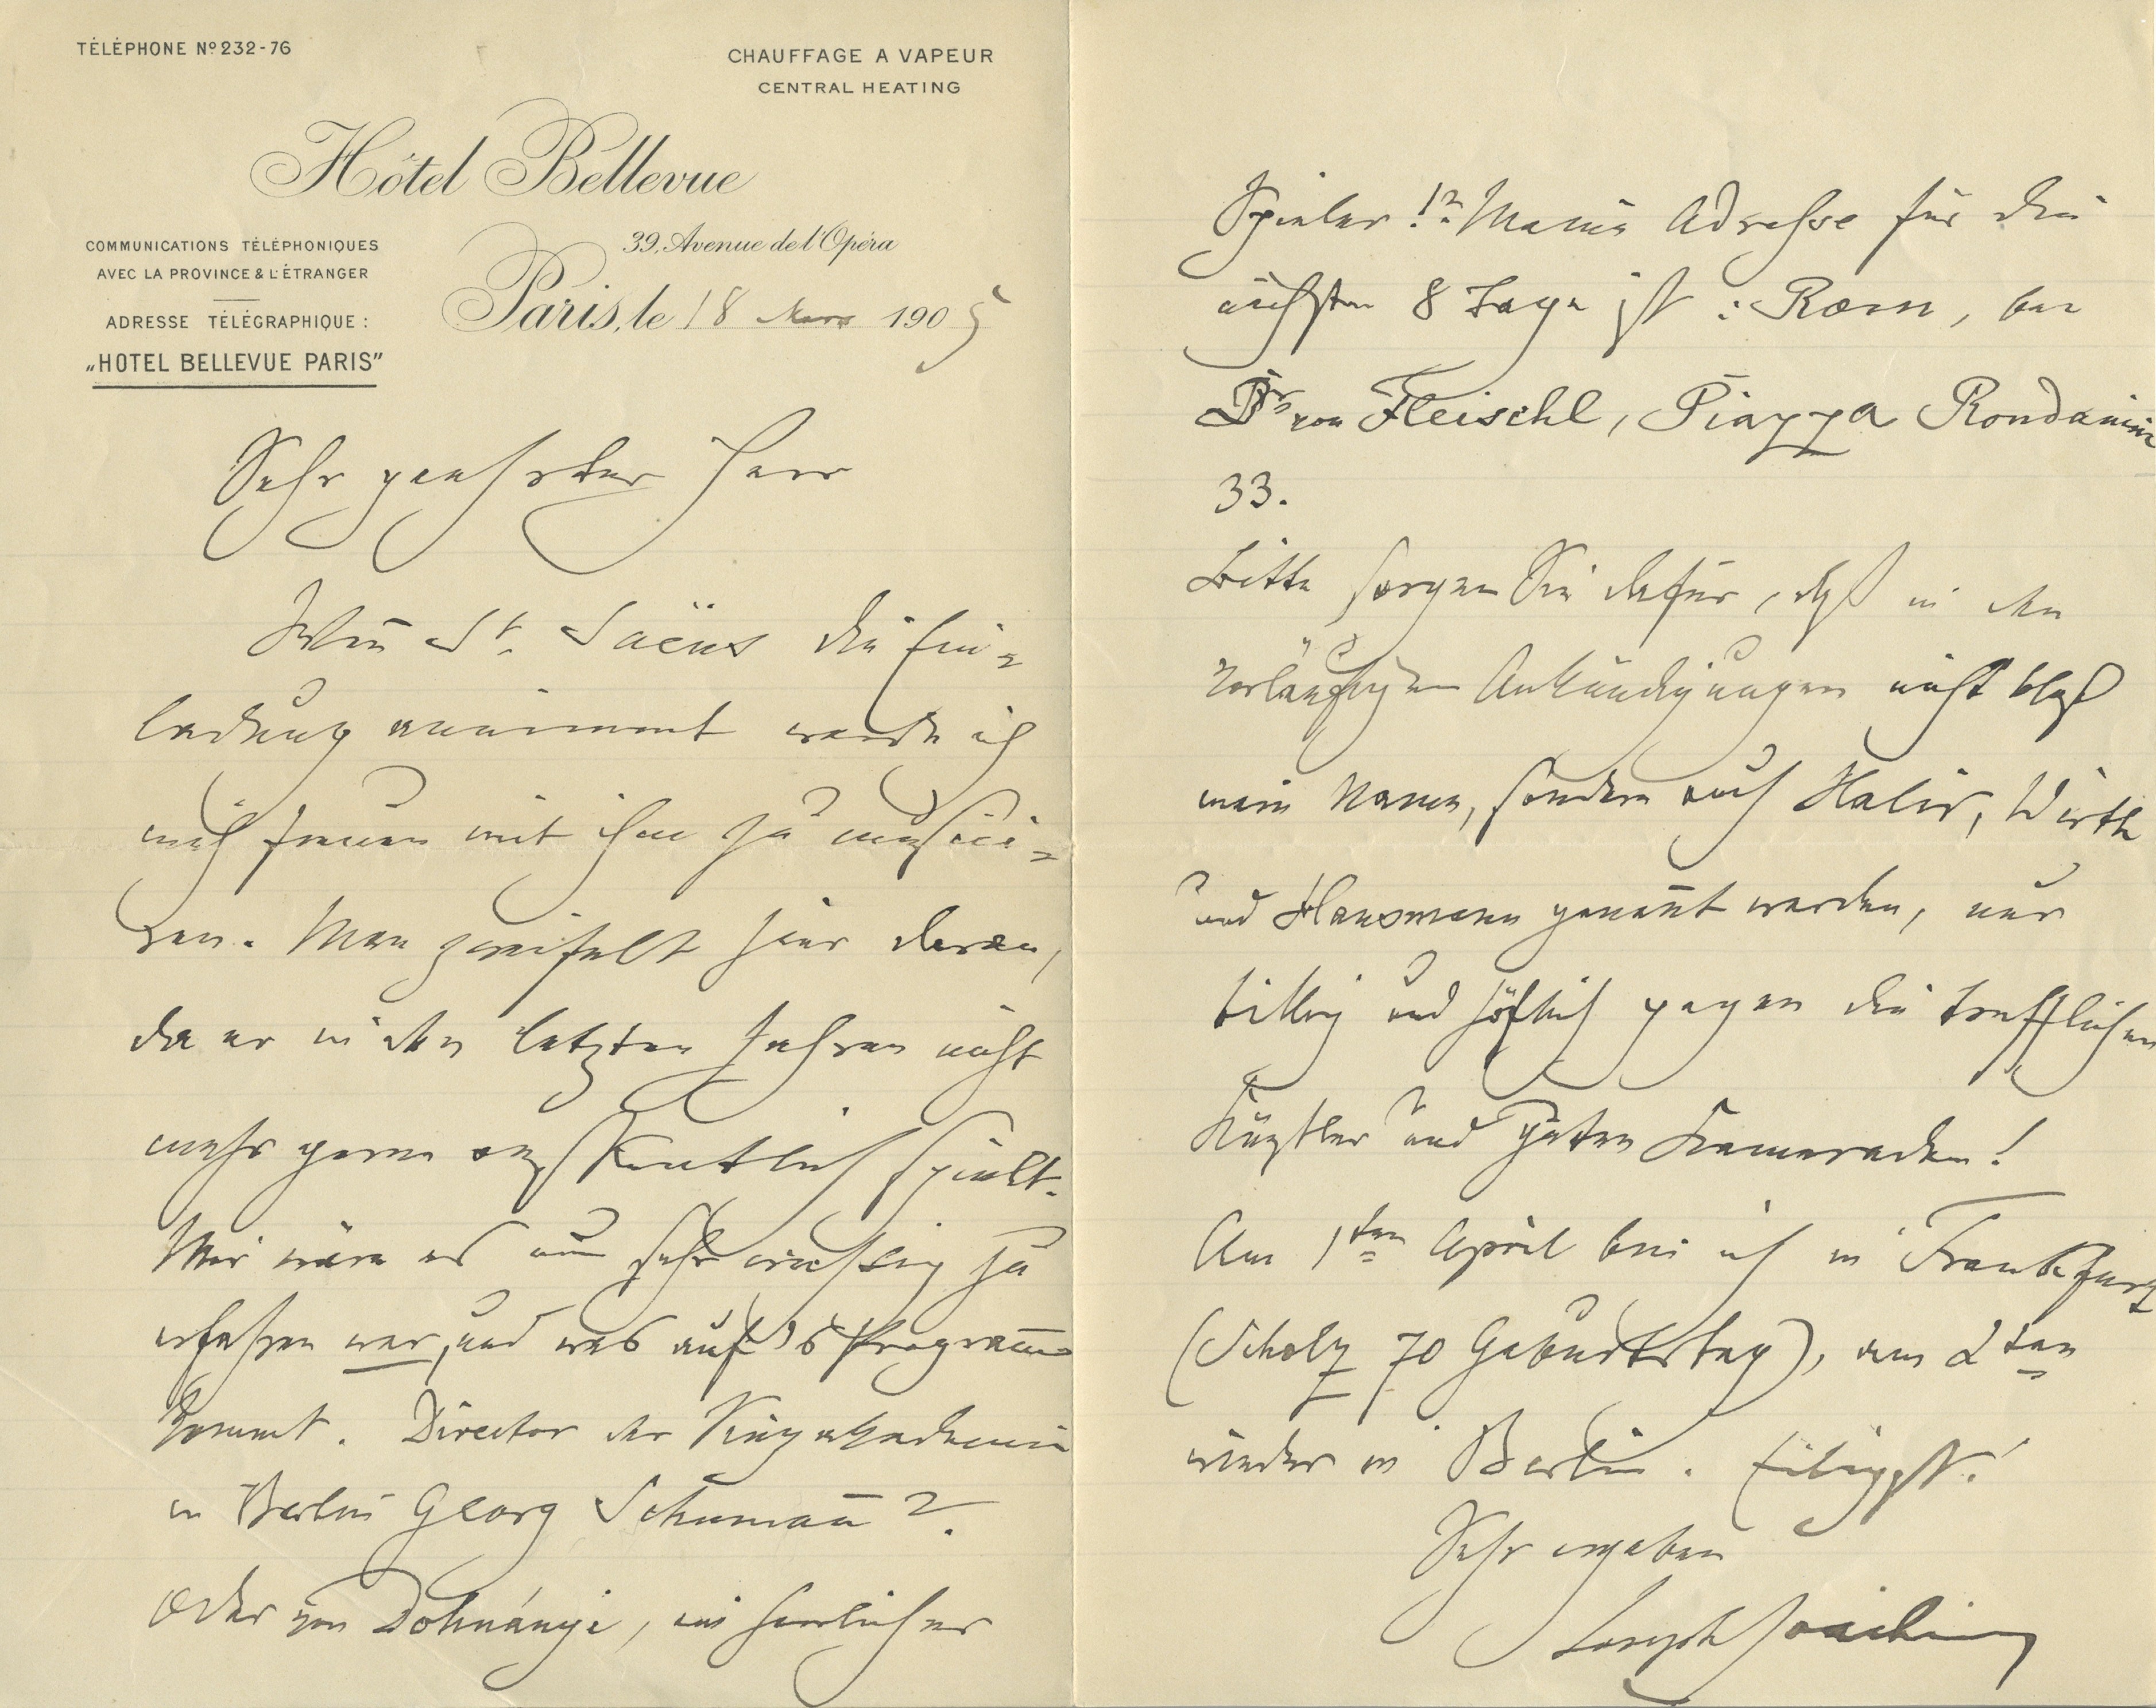 TÉLÉPHONE Nº 232-76
CHAUFFAGE A VAPEUR
CENTRAL HEATING
Hôtel Bellevue
39, Avenue de l'Opéra
COMMUNICATIONS TÉLÉPHONIQUES
AVEC LA PROVINCE & L'ÉTRANGER
ADRESSE TÉLÉGRAPHIQUE :
„HOTEL BELLEVUE PARIS”
Paris, le 18 Mars 1905
Sehr geehrter Herr
Wen̄ St. Saëns die Ein=
ladung annimmt werde ich
mich freuen mit ihm zu musici=
ren. Man zweifelt hier daran,
da er in den letzten Jahren nicht
mehr gerne öffentlich spielt.
Mir wäre es nun sehr wichtig zu
erfahren wer, und was auf's Program̄
kommt. Director der Singakademie
in Berlin Georg Schuman̄ ?
Oder von Dohnányi, ein herrlicher
Spieler!? Meine Adresse für die
nächsten 8 Tage ist : Rom, bei
Dr von Fleischl, Piazza Rondanini
33.
Bitte sorgen Sie dafür, daß in den
vorläufigen Ankündigungen nicht bloß
mein Namen, sondern auch Halir, Wirth
und Hausmann genan̄t werden, nur
billig und höflich gegen die trefflichen
Künstler und guten Kameraden!
Am 1ten April bin ich in Frankfurt
(Scholz 70 Geburtstag), am 2ten
wieder in Berlin. Eiligst!
Sehr ergeben
Joseph Joachim